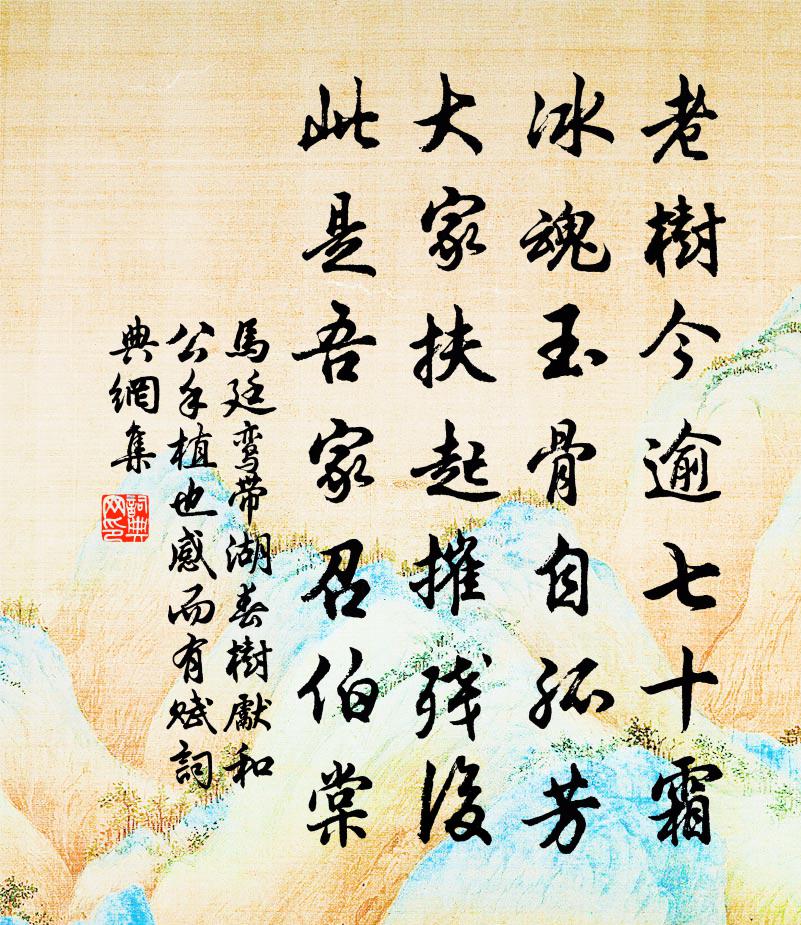 老樹今逾七十霜
冰魂玉骨自孤芳
大家扶起摧殘後
此是吾家召伯棠
馬廷鸾带湖春樹獻和
公手植也感而有赋詞
典網集
詞典
网印